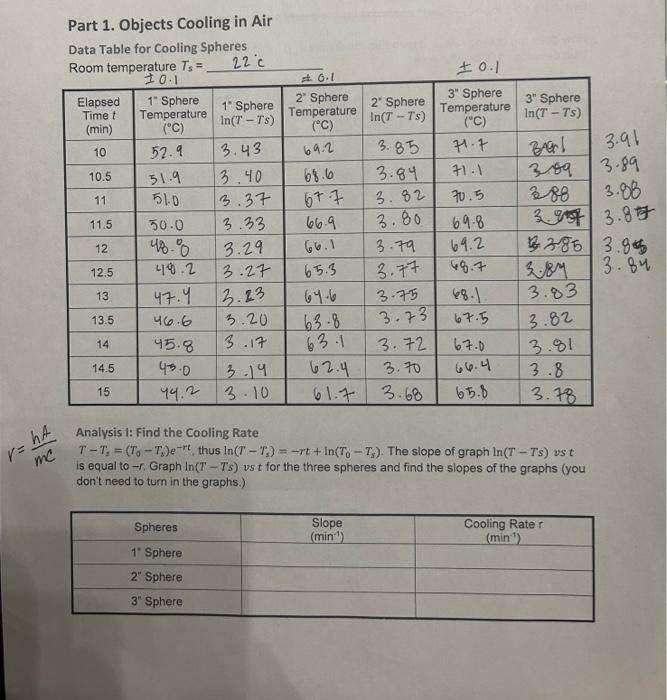 Part 1. Objects Cooling in Air
Data Table for Cooling Spheres
Room temperature Ts = 22°c
± 0.1 ± 0.1 ± 0.1
Elapsed Time t (min) 1" Sphere Temperature (°C) 1" Sphere ln(T – Ts) 2" Sphere Temperature (°C) 2" Sphere ln(T – Ts) 3" Sphere Temperature (°C) 3" Sphere ln(T – Ts)
10 52.9 3.43 69.2 3.85 71.7 3.91
10.5 51.9 3.40 68.6 3.84 71.1 3.89 3.89
11 51.0 3.37 67.7 3.82 70.5 3.88 3.88
11.5 50.0 3.33 66.9 3.80 69.8 3.87
12 48.8 3.29 66.1 3.79 69.2 3.85 3.85
12.5 48.2 3.27 65.3 3.77 68.7 3.84 3.84
13 47.4 3.23 64.6 3.75 68.1 3.83
13.5 46.6 3.20 63.8 3.73 67.5 3.82
14 45.8 3.17 63.1 3.72 67.0 3.81
14.5 45.0 3.14 62.4 3.70 66.4 3.8
15 44.2 3.10 61.7 3.68 65.8 3.78
r = hA/mc
Analysis I: Find the Cooling Rate
T – Ts = (T0 – Ts)e^-rt, thus ln(T – Ts) = –rt + ln(T0 – Ts). The slope of graph ln(T – Ts) vs t
is equal to –r. Graph ln(T – Ts) vs t for the three spheres and find the slopes of the graphs (you
don't need to turn in the graphs.)
Spheres Slope (min⁻¹) Cooling Rate r (min⁻¹)
1" Sphere
2" Sphere
3" Sphere